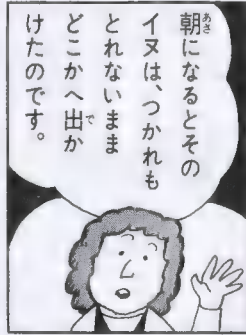 朝になるとその
イヌは、つかれも
とれないまま
どこかへ出か
けたのです。